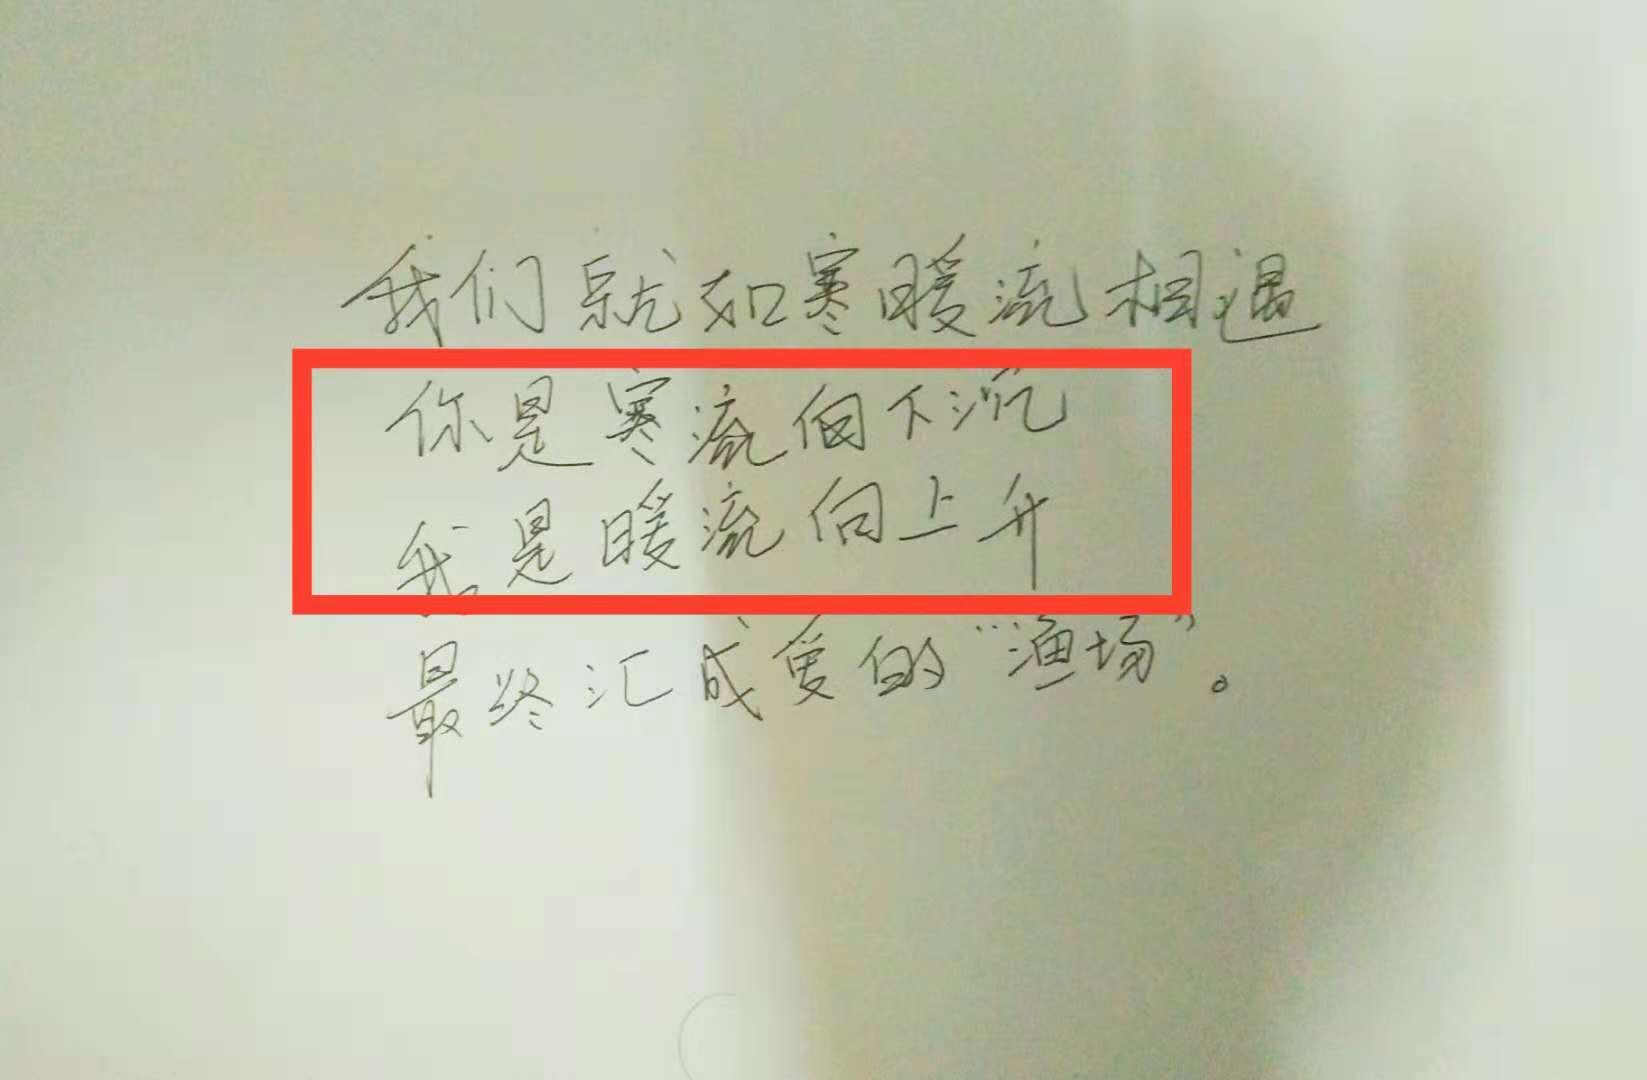 我们就如寒暖流相遇
你是寒流向下沉
我是暖流向上升
最终汇成爱的“渔场”。